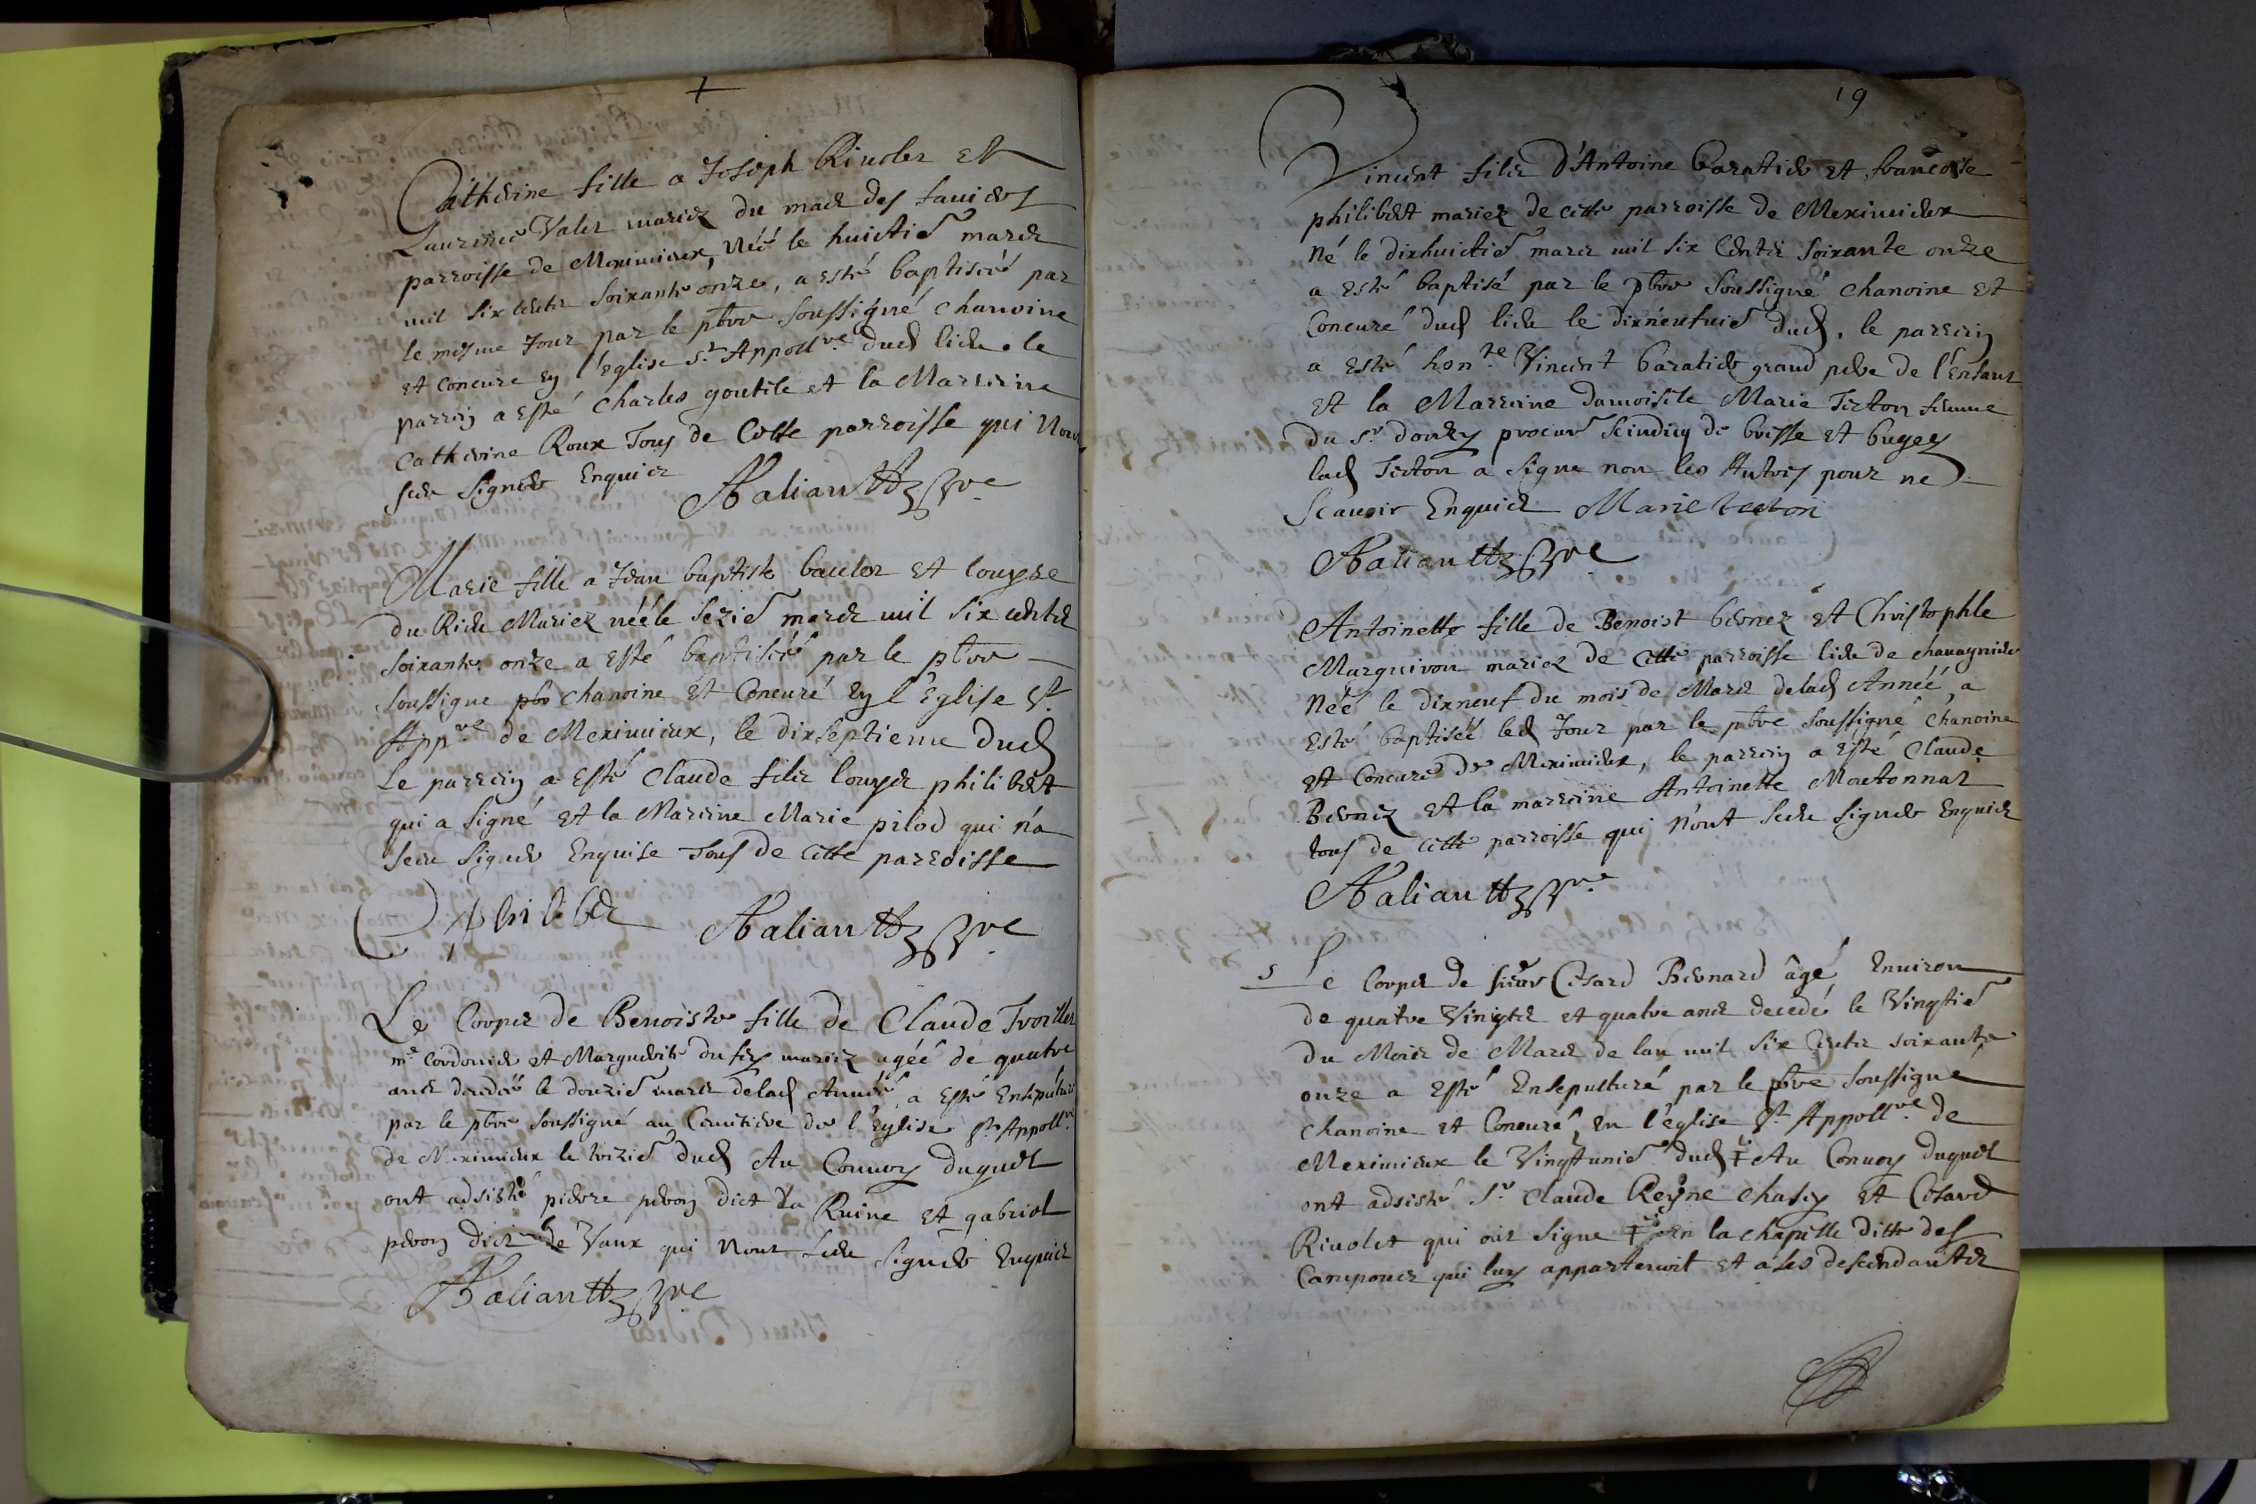 Catherine fille a Joseph Rivolet et
Laurence Valet mariez du mas des
parroisse de Meximieux, née le huictie mars
mil six cents soixante onze, a esté baptisée par
le mesme Jour par le pbre soussigné chanoine
et concure en l'eglise St Appollre dud lieu. le
parrein a esté Charles goutele et la Marreine
Catherine Roux Tous de Cette parroisse qui nont
sceu signer Enquis
Marie fille a Jean baptiste bauler et louyse
du Rieu Mariez née le sezie mars mil six cents
soixante onze a esté baptisée par le pbre
soussigne pbre chanoine et Concuré en l'Eglise St
Appre de Meximieux, le dixseptieme dud
Le parrein a Esté Claude filz louys philibert
qui a signé et la Mareine Marie pilod qui n'a
sceu signer Enquise Tous de cette parroisse
philibert
Le Corps de Benoiste fille de Claude
me Cordonier et Marguerite du fey mariez agéé de quatre
ans decedée le douzie mars delad Année, a esté Ensepulturé
par le pbre soussigné au Cemetiere de l'Eglise St Appollre
de Meximieux le treizie dud Au Convoy duquel
ont adsisté pierre peron dict la Ruine et gabriel
peron dict de Vaux qui nont sceu signer Enquis
19
Vincent filz D'Antoine baratier et francoise
philibert mariez de cette parroisse de Meximieux
Né le dixhuictie mars mil six Cents soixante onze
a esté baptisé par le pbre soussigné chanoine et
Concuré dud lieu le dixneufuie dud. le parrein
a esté honte Vincent baratier grand pere de l'Enfant
et la Marreine damoiselle Marie Tecton femme
du Sr procur scindicq de bresse et bugey
lad Tecton a signe non les Autres pour ne
Scavoir Enquis Marie tecton
Antoinette fille de Benoist bernez et Christophle
Marguivon mariez de Cette parroisse lieu de chavagnieu
Néé le dixneuf du mois de Mars delad Année, a
Esté baptiséé led Jour par le pbre soussigné chanoine
et Concuré de Meximieux, le parrein a Esté Claude
Bernez et la marreine Antoinette Moutonnat
tous de cette parroisse qui n'ont sceu signer Enquis
S
Le Corps de sieur Cesard Bernard âgé Environ
de quatre Vingts et quatre ans decedé le Vingtie
du Mois de Mars de lan mil six cents soixante
onze a Esté Ensepulturé par le pbre soussigne
chanoine et Concuré, en l'eglise St Appollre de
Meximieux le Vingtunie dud Au Convoy duquel
ont adsisté Sr Claude Reyne et Cesard
Rivolet qui ont signe en la chapelle ditte des
Campones qui luy appartenoit et a ses descendants